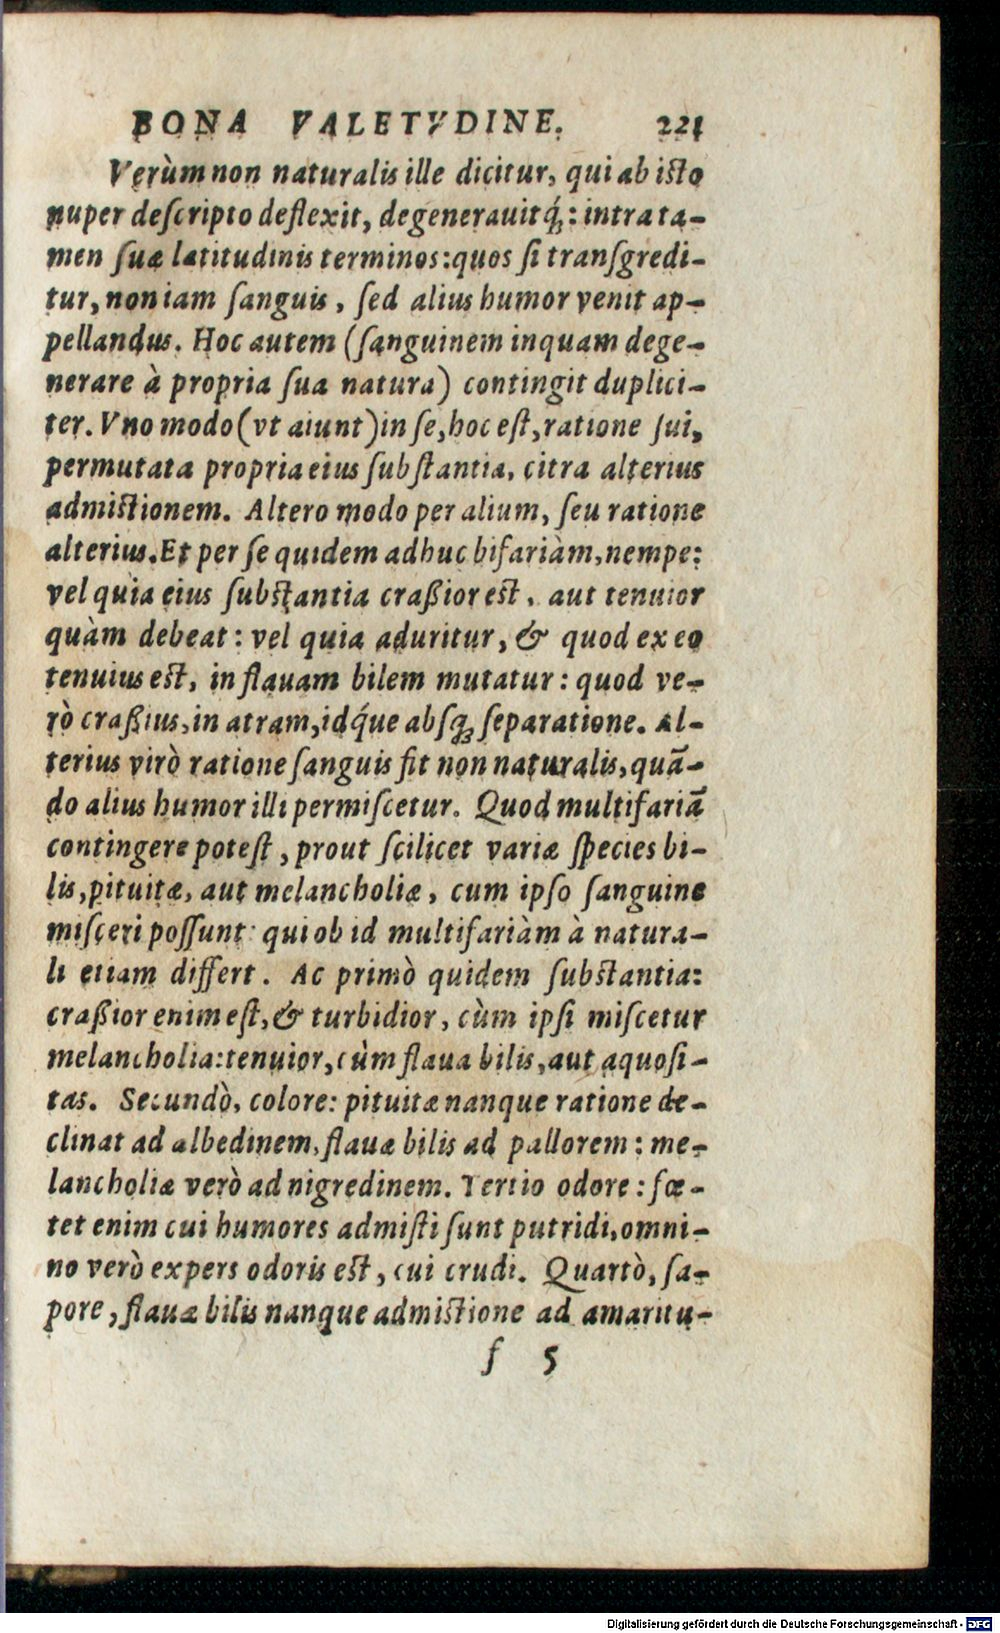 BONA VALETVDINE. 221
Verùm non naturalis ille dicitur, qui ab isto
nuper descripto deflexit, degenerauitq́;: intra ta-
men suæ latitudinis terminos: quos si transgredi-
tur, non iam sanguis, sed alius humor venit ap-
pellandus. Hoc autem (sanguinem inquam dege-
nerare à propria sua natura) contingit duplici-
ter. Vno modo (vt aiunt) in se, hoc est, ratione sui,
permutata propria eius substantia, citra alterius
admistionem. Altero modo per alium, seu ratione
alterius. Et per se quidem adhuc bifariàm, nempe:
vel quia eius substantia craßior est, aut tenuior
quàm debeat: vel quia aduritur, & quod ex eo
tenuius est, in flauam bilem mutatur: quod ve-
rò craßius, in atram, idq́ue absq; separatione. Al-
terius virò ratione sanguis fit non naturalis, quā-
do alius humor illi permiscetur. Quod multifariā
contingere potest, prout scilicet variæ species bi-
lis, pituitæ, aut melancholiæ, cum ipso sanguine
misceri possunt: qui ob id multifariàm à natura-
li etiam differt. Ac primò quidem substantia:
craßior enim est, & turbidior, cùm ipsi miscetur
melancholia: tenuior, cùm flaua bilis, aut aquosi-
tas. Secundò, colore: pituitæ nanque ratione de-
clinat ad albedinem, flauæ bilis ad pallorem: me-
lancholiæ verò ad nigredinem. Tertio odore: fœ-
tet enim cui humores admisti sunt putridi, omni-
no verò expers odoris est, cui crudi. Quartò, sa-
pore, flauæ bilis nanque admistione ad amaritu-
f 5
Digitalisierung gefördert durch die Deutsche Forschungsgemeinschaft - DFG